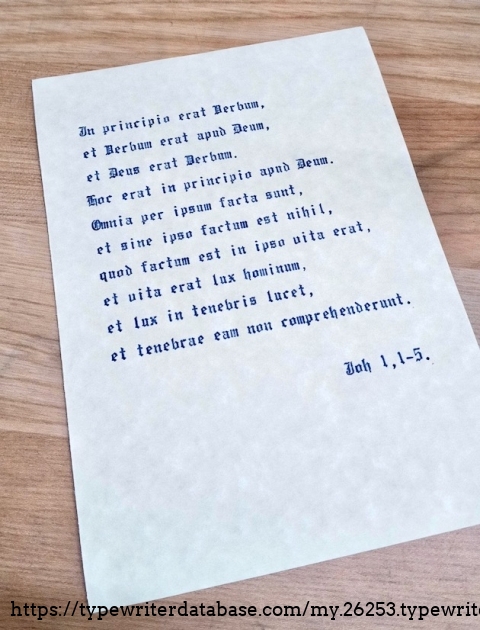 In principio erat Verbum,
et Verbum erat apud Deum,
et Deus erat Verbum.
Hoc erat in principio apud Deum.
Omnia per ipsum facta sunt,
et sine ipso factum est nihil,
quod factum est in ipso vita erat,
et vita erat lux hominum,
et lux in tenebris lucet,
et tenebrae eam non comprehenderunt.
Joh 1,1-5.
https://typewriterdatabase.com/my.26253.typewrite